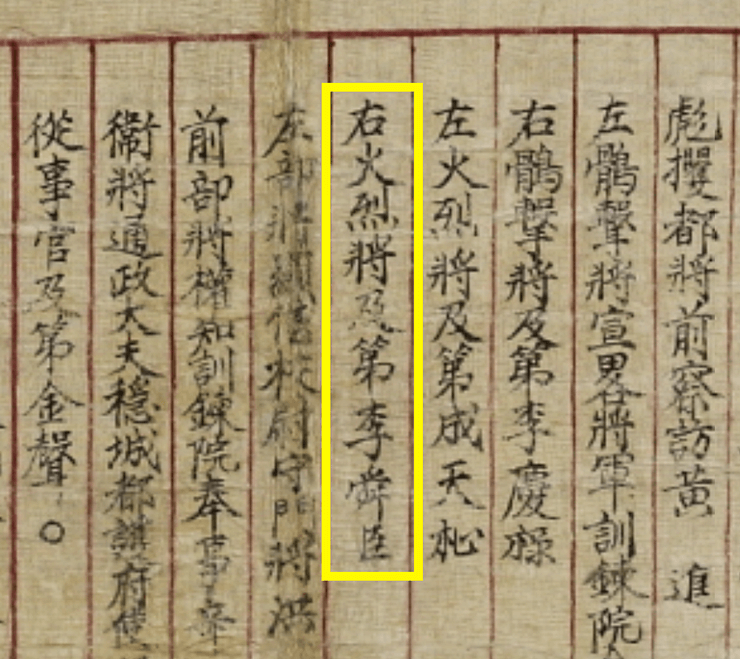 彪攫都將前察訪黃進
左鶻擊將宣畧將軍訓鍊院
右鶻擊將及第李慶祿
左火烈將及第成天祉
右火烈將及第李舜臣
左部將校尉守門將洪
前部將權知訓鍊院奉事
衞將通政大夫穩城都護府使
從事官及第金聲